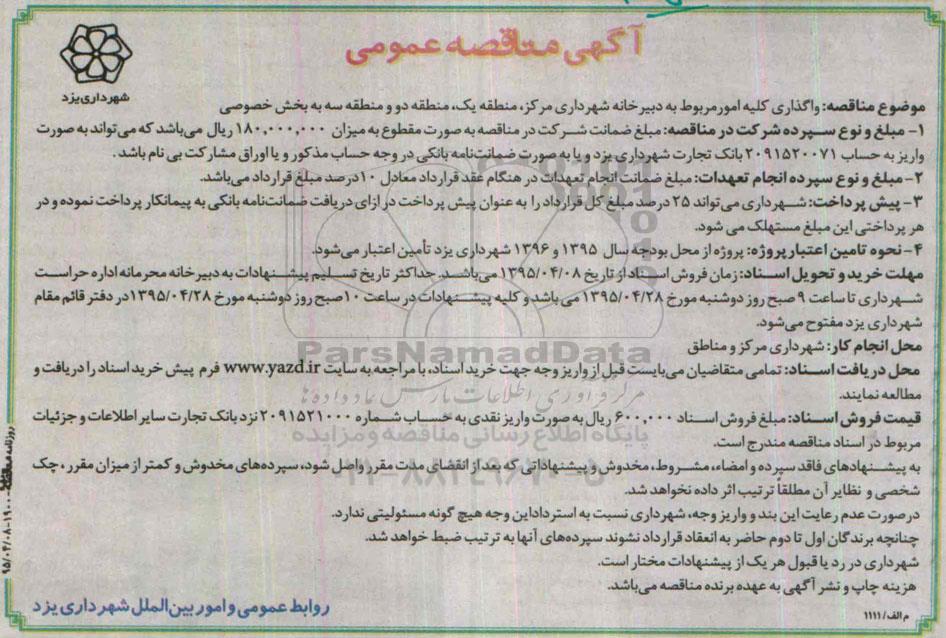 آگهی مناقصه عمومی
شهرداری یزد
موضوع مناقصه: واگذاری کلیه امور مربوط به دبیرخانه شهرداری مرکز، منطقه یک، منطقه دو و منطقه سه به بخش خصوصی
۱- مبلغ و نوع سپرده شرکت در مناقصه: مبلغ ضمانت شرکت در مناقصه به صورت مقطوع به میزان ۱۸۰,۰۰۰,۰۰۰ ریال می‌باشد که می‌تواند به صورت
واریز به حساب ۲۰۹۱۵۲۰۰۷۱ بانک تجارت شهرداری یزد و یا به صورت ضمانت‌نامه بانکی در وجه حساب مذکور و یا اوراق مشارکت بی نام باشد.
۲- مبلغ و نوع سپرده انجام تعهدات: مبلغ ضمانت انجام تعهدات در هنگام عقد قرارداد معادل ۱۰درصد مبلغ قرارداد می‌باشد.
۳- پیش پرداخت: شهرداری می‌تواند ۲۵ درصد مبلغ کل قرارداد را به عنوان پیش پرداخت در ازای دریافت ضمانت‌نامه بانکی به پیمانکار پرداخت نموده و در
هر پرداختی این مبلغ مستهلک می شود.
۴- نحوه تامین اعتبار پروژه: پروژه از محل بودجه سال ۱۳۹۵ و ۱۳۹۶ شهرداری یزد تأمین اعتبار می‌شود.
مهلت خرید و تحویل اسناد: زمان فروش اسناد از تاریخ ۱۳۹۵/۰۴/۰۸ می‌باشد. حداکثر تاریخ تسلیم پیشنهادات به دبیرخانه محرمانه اداره حراست
شهرداری تا ساعت ۹ صبح روز دوشنبه مورخ ۱۳۹۵/۰۴/۲۸ می باشد و کلیه پیشنهادات در ساعت ۱۰صبح روز دوشنبه مورخ ۱۳۹۵/۰۴/۲۸در دفتر قائم مقام
شهرداری یزد مفتوح می‌شود.
محل انجام کار: شهرداری مرکز و مناطق
محل دریافت اسناد: تمامی متقاضیان می‌بایست قبل از واریز وجه جهت خرید اسناد، با مراجعه به سایت www.yazd.ir فرم پیش خرید اسناد را دریافت و
مطالعه نمایند.
قیمت فروش اسناد: مبلغ فروش اسناد ۶۰۰,۰۰۰ ریال به صورت واریز نقدی به حساب شماره ۲۰۹۱۵۲۱۰۰۰ نزد بانک تجارت سایر اطلاعات و جزئیات
مربوط در اسناد مناقصه مندرج است.
به پیشنهادهای فاقد سپرده و امضاء، مشروط، مخدوش و پیشنهاداتی که بعد از انقضای مدت مقرر واصل شود، سپرده‌های مخدوش و کمتر از میزان مقرر، چک
شخصی و نظایر آن مطلقاً ترتیب اثر داده نخواهد شد.
درصورت عدم رعایت این بند و واریز وجه، شهرداری نسبت به استرداد این وجه هیچ گونه مسئولیتی ندارد.
چنانچه برندگان اول تا دوم حاضر به انعقاد قرارداد نشوند سپرده‌های آنها به ترتیب ضبط خواهد شد.
شهرداری در رد یا قبول هر یک از پیشنهادات مختار است.
هزینه چاپ و نشر آگهی به عهده برنده مناقصه می‌باشد.
روابط عمومی و امور بین‌الملل شهرداری یزد
م الف/ ۱۱۱۱
ParsNamadData
مرکز فرآوری اطلاعات پارس نماد داده‌ها
پایگاه اطلاع رسانی مناقصه و مزایده
۰۲۱-۸۸۳۴۹۶۷۰-۵